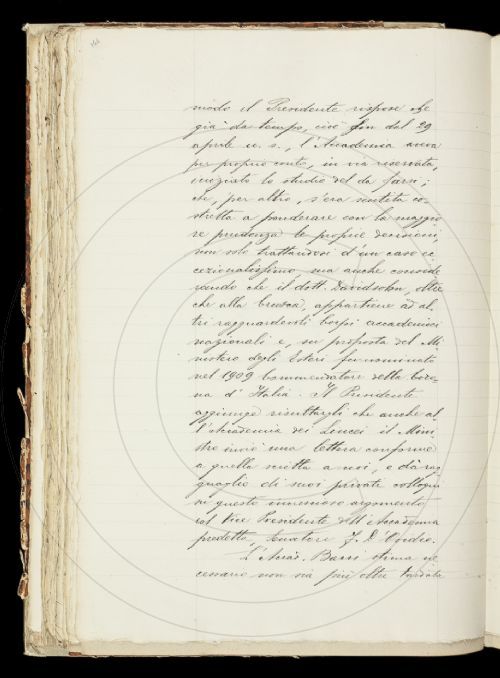 modo il Presidente rispose che
già da tempo, cioè fin dal 29
aprile u. s., l'Accademia aveva
per proprio conto, in via riservata,
iniziato lo studio del da farsi;
che, per altro, s'era sentita co-
stretta a ponderare con la maggio
re prudenza le proprie decisioni,
non solo trattandosi d'un caso ec
cezionalissimo, ma anche conside
rando che il dott. Davidsohn, oltre
che alla Crusca, appartiene ad al
tri ragguardevoli Corpi accademici
nazionali e, su proposta del Mi
nistero degli Esteri fu nominato
nel 1909 Commendatore della Coro-
na d'Italia. Il Presidente
aggiunge risultargli che anche al
l'Accademia dei Lincei il Mini-
stro inviò una lettera conforme
a quella scritta a noi, e dà rag
guaglio di suoi privati colloqui
su questo increscioso argomento
col Vice Presidente dell'Accademia
predetta, Senatore F. D'Ovidio.
L'Accad. Barzi stima ne
cessario non sia più oltre tardata